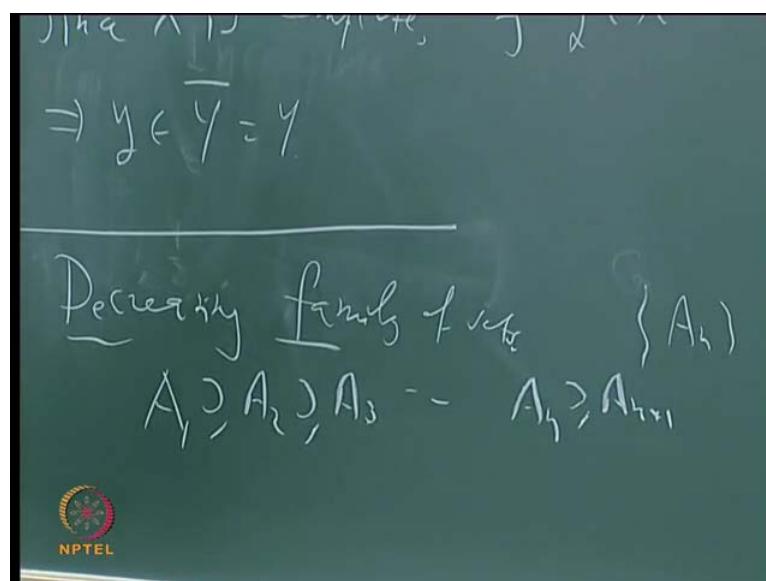 since X is complete, ∃
⇒ y ∈ Y̅ = Y.
Decreasing family of sets {Aₙ}
A₁ ⊇ A₂ ⊇ A₃ -- Aₙ ⊇ Aₙ₊₁
NPTEL